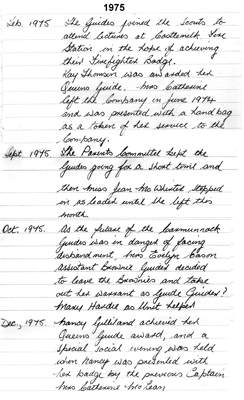 1975
Feb. 1975 The Guides joined the Scouts to
attend lectures at Castlemilk Fire
Station in the hope of achieving
their Firefighters Badge.
Kay Thomson was awarded her
Queens Guide. Miss Catherine
left the Company in June 1974
and was presented with a handbag
as a token of her service to the
Company.
Sept. 1975 The Parents Committee kept the
Guides going for a short time and
then Miss Jean McWhirter stepped
in as leader until she left this
month.
Oct. 1975. As the future of the Carmunnock
Guides was in danger of facing
disbandment, Miss Evelyn Cason
Assistant Brownie Guider decided
to leave the Brownies and take
out her warrant as Guide Guider?
Hardie as Unit helper
Dec., 1975. Nancy Gilliland achieved her
Queens Guide award, and a
special social evening was held
when Nancy was presented with
her badge by the previous Captain
Miss Catherine McLean.